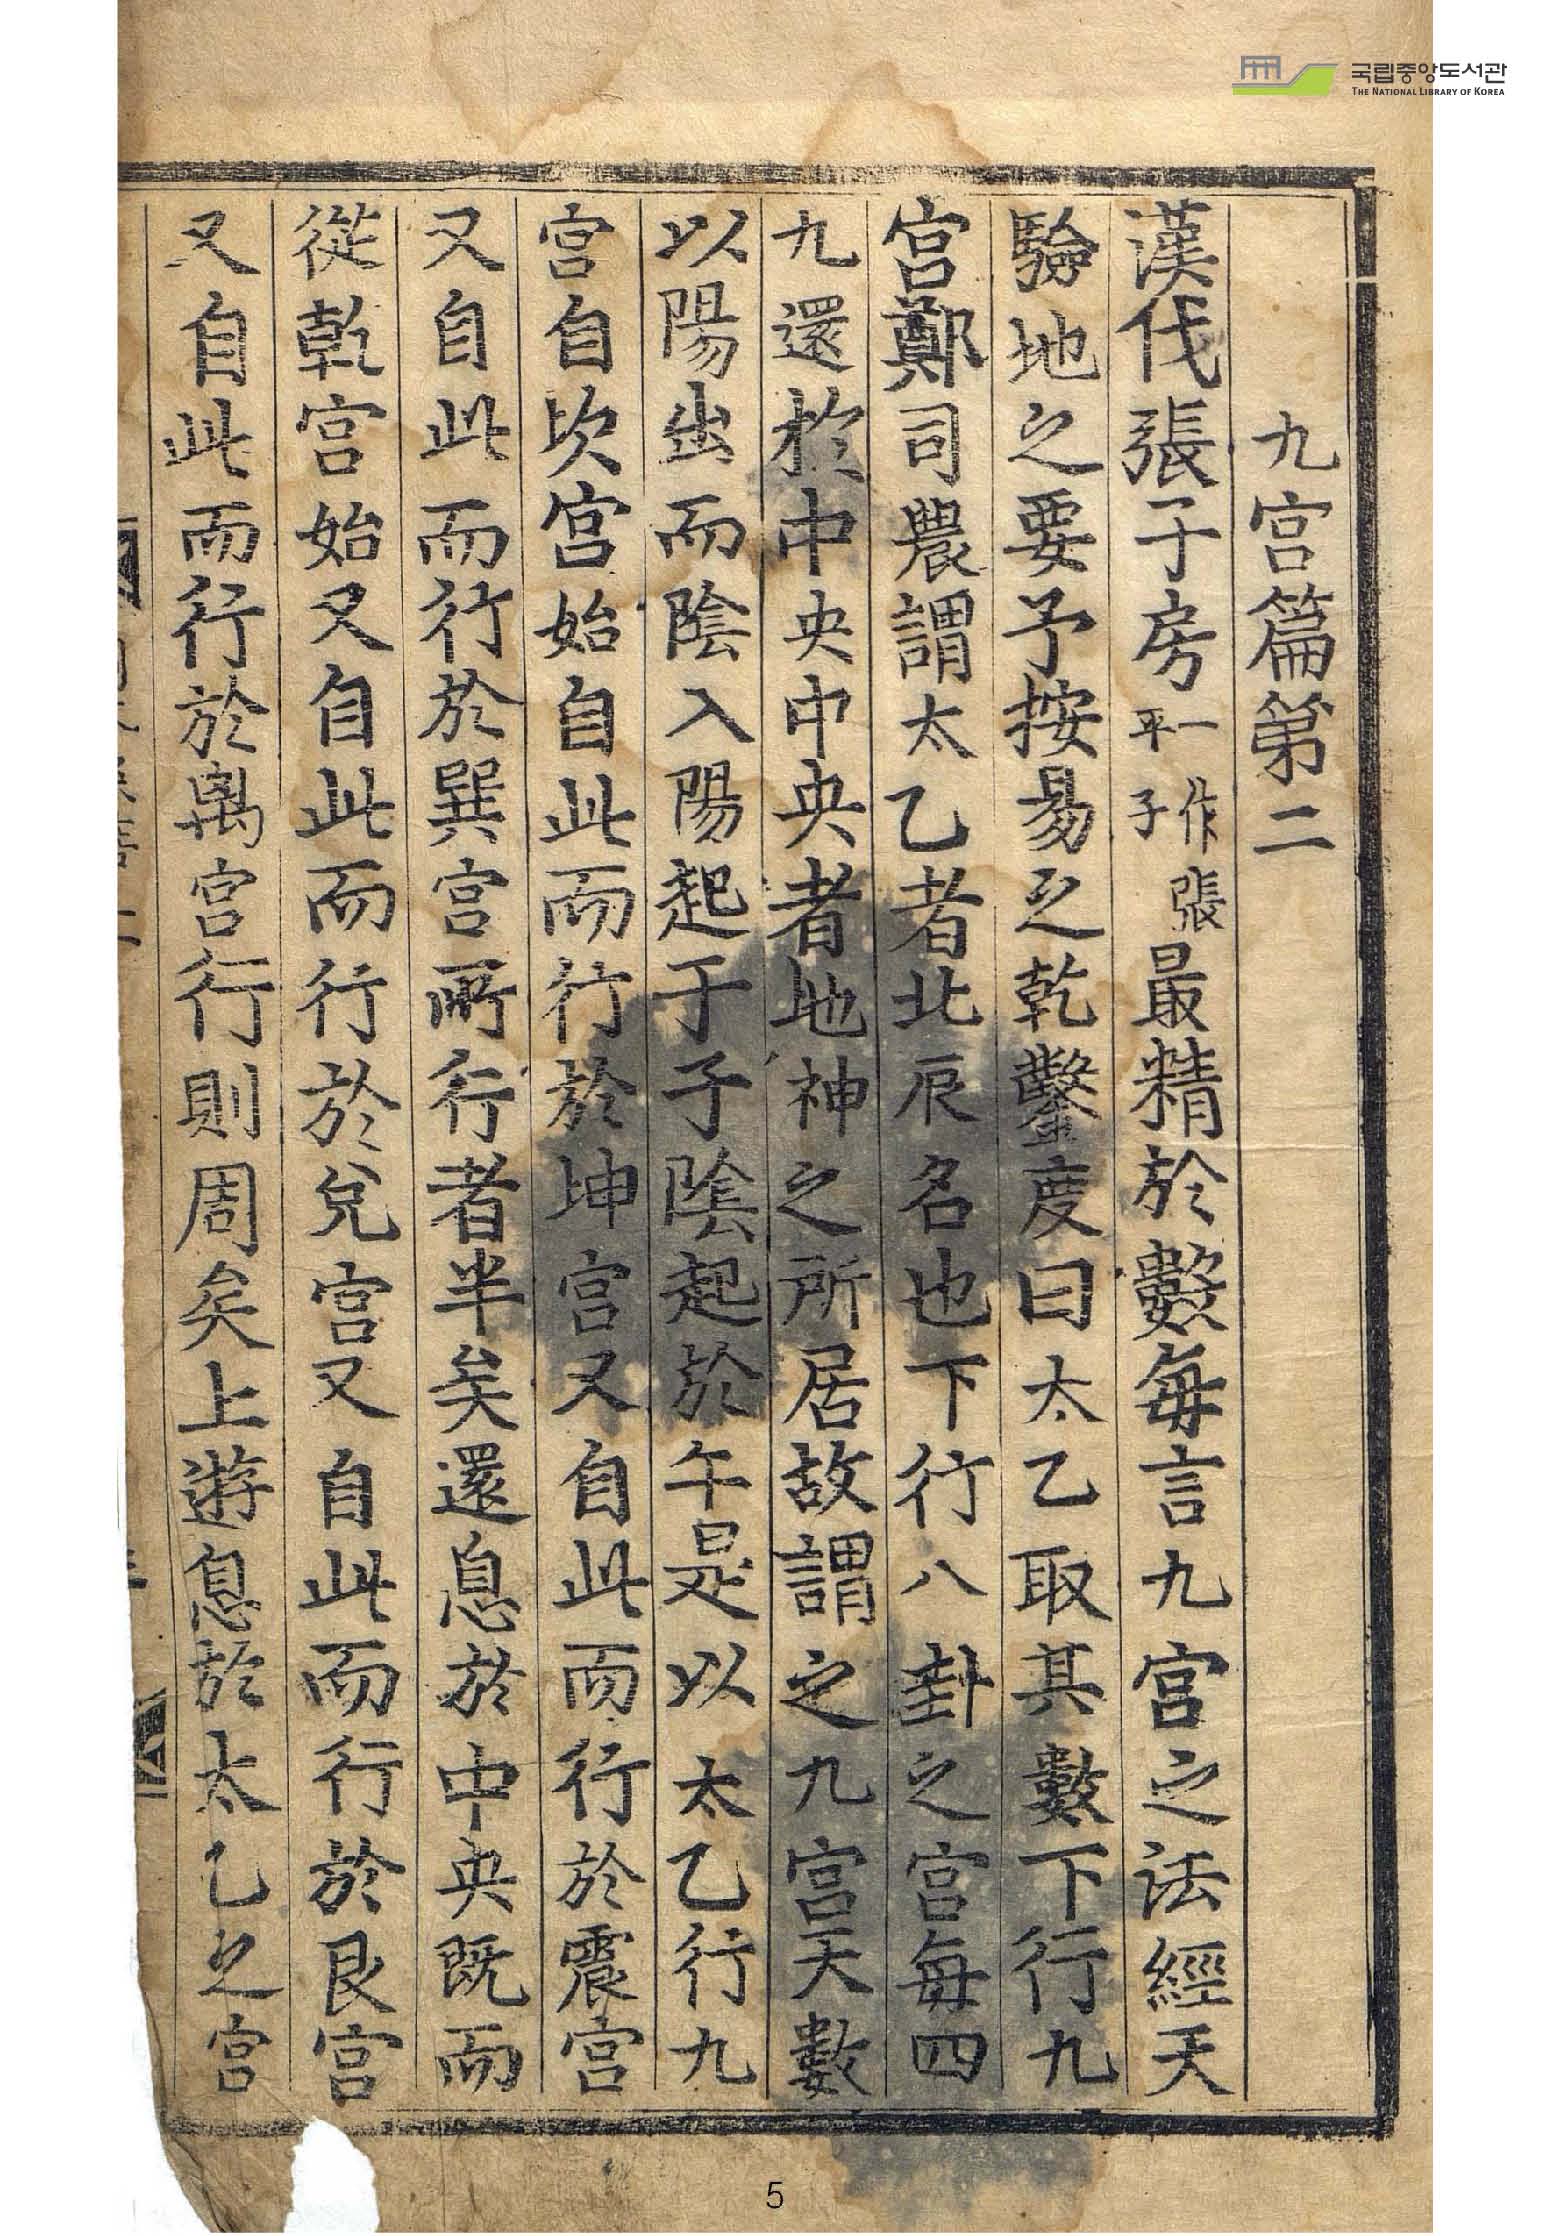 국립중앙도서관
THE NATIONAL LIBRARY OF KOREA
九宮篇第二
漢代張子房一作張平子最精於數每言九宮之法經天
驗地之要予按易之乾鑿度曰太乙取其數下行九
宮鄭司農謂太乙者北辰名也下行八卦之宮每四
九還於中央中央者地神之所居故謂之九宮天數
以陽出而陰入陽起于子陰起於午是以太乙行九
宮自坎宮始自此而行於坤宮又自此而行於震宮
又自此而行於巽宮所行者半矣還息於中央既而
從乾宮始又自此而行於兌宮又自此而行於艮宮
又自此而行於离宮行則周矣上遊息於太乙之宮
5